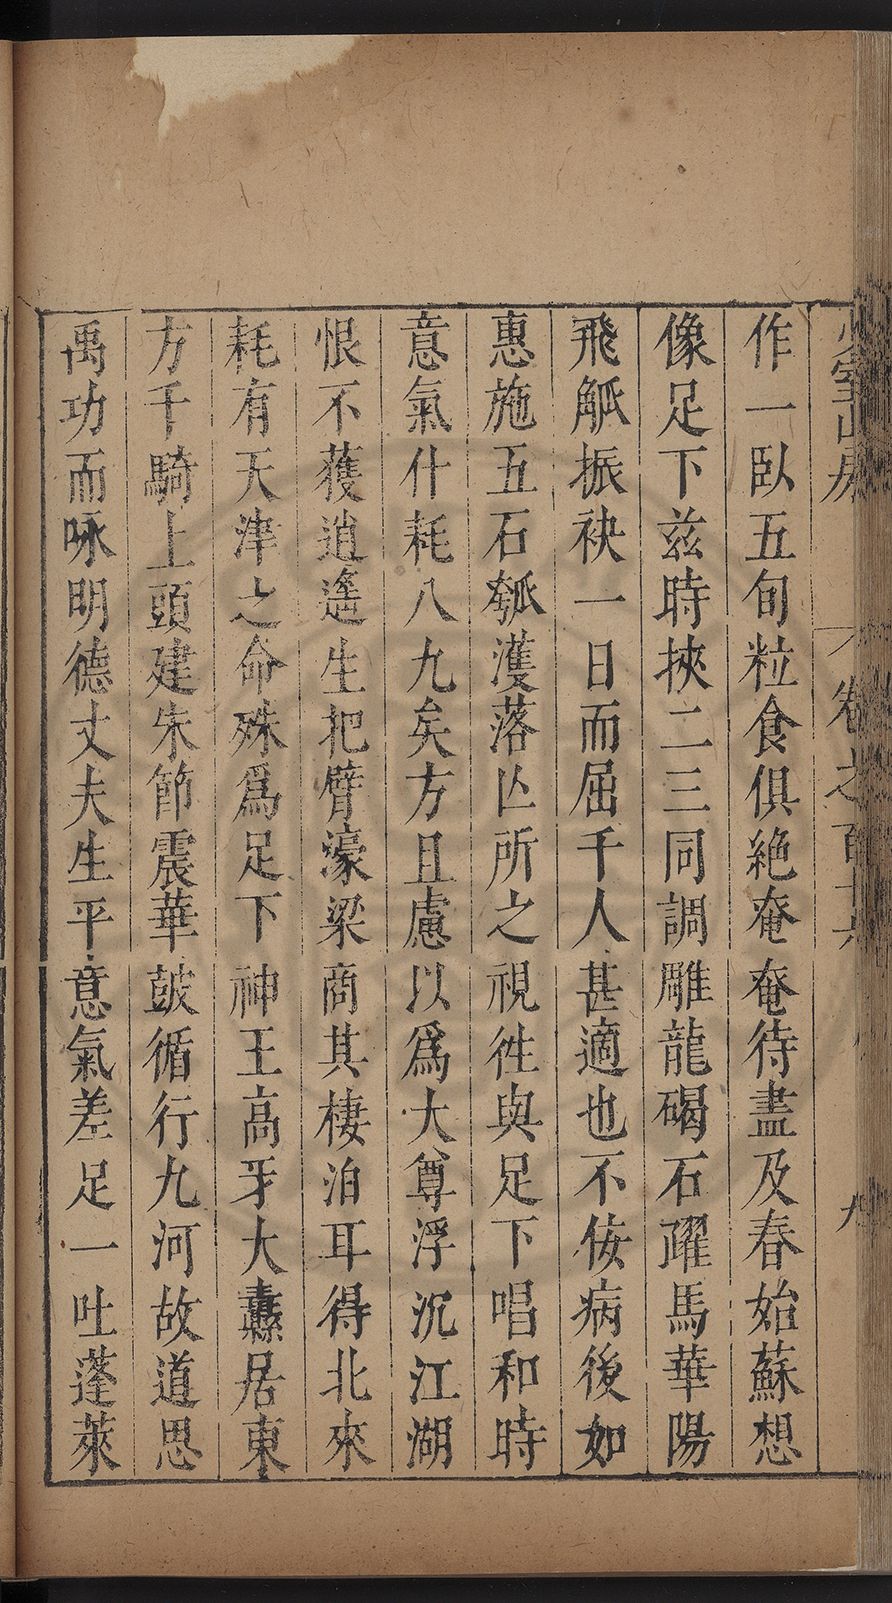 室山房　卷之百十六　九
作一臥五旬粒食俱絶奄奄待盡及春始蘇想
像足下兹時挾二三同調雕龍碣石躍馬華陽
飛觚振袂一日而屈千人甚適也不佞病後如
惠施五石瓠濩落亾所之視徃與足下唱和時
意氣什耗八九矣方且慮以爲大尊浮沉江湖
恨不獲逍遙生把臂濠梁商其棲泊耳得北來
耗有天津之命殊爲足下神王高牙大纛居東
方千騎上頭建朱節震華皷循行九河故道思
禹功而咏明德丈夫生平意氣差足一吐蓬萊